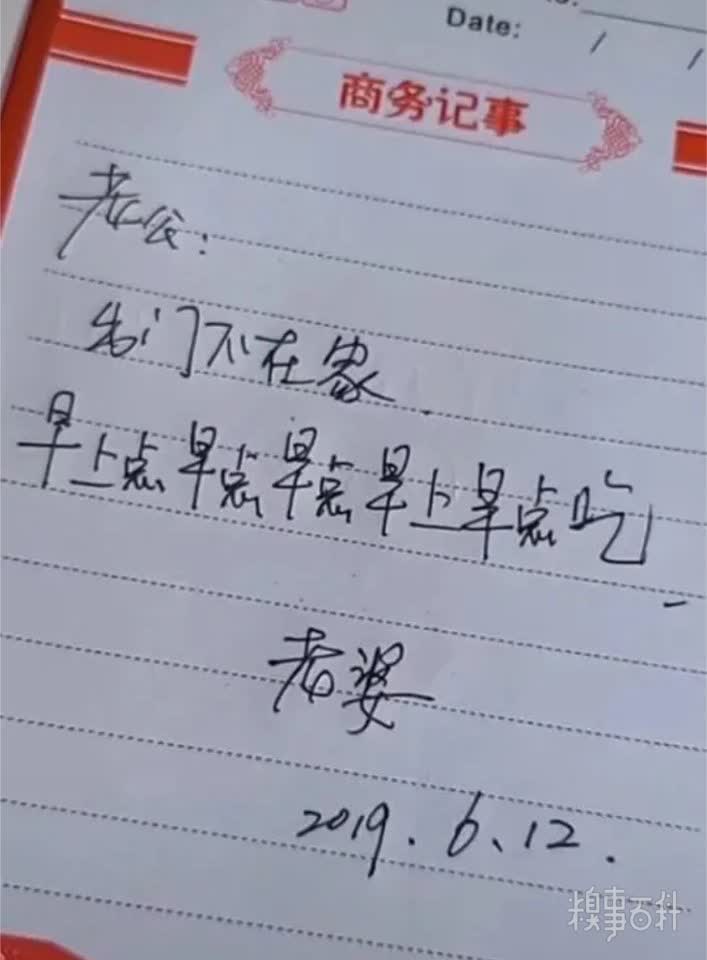 Date: / /
商务记事
老公:
出门不在家.
早上点早点早点早上早点吃
老婆
2019.6.12.
糗事百科